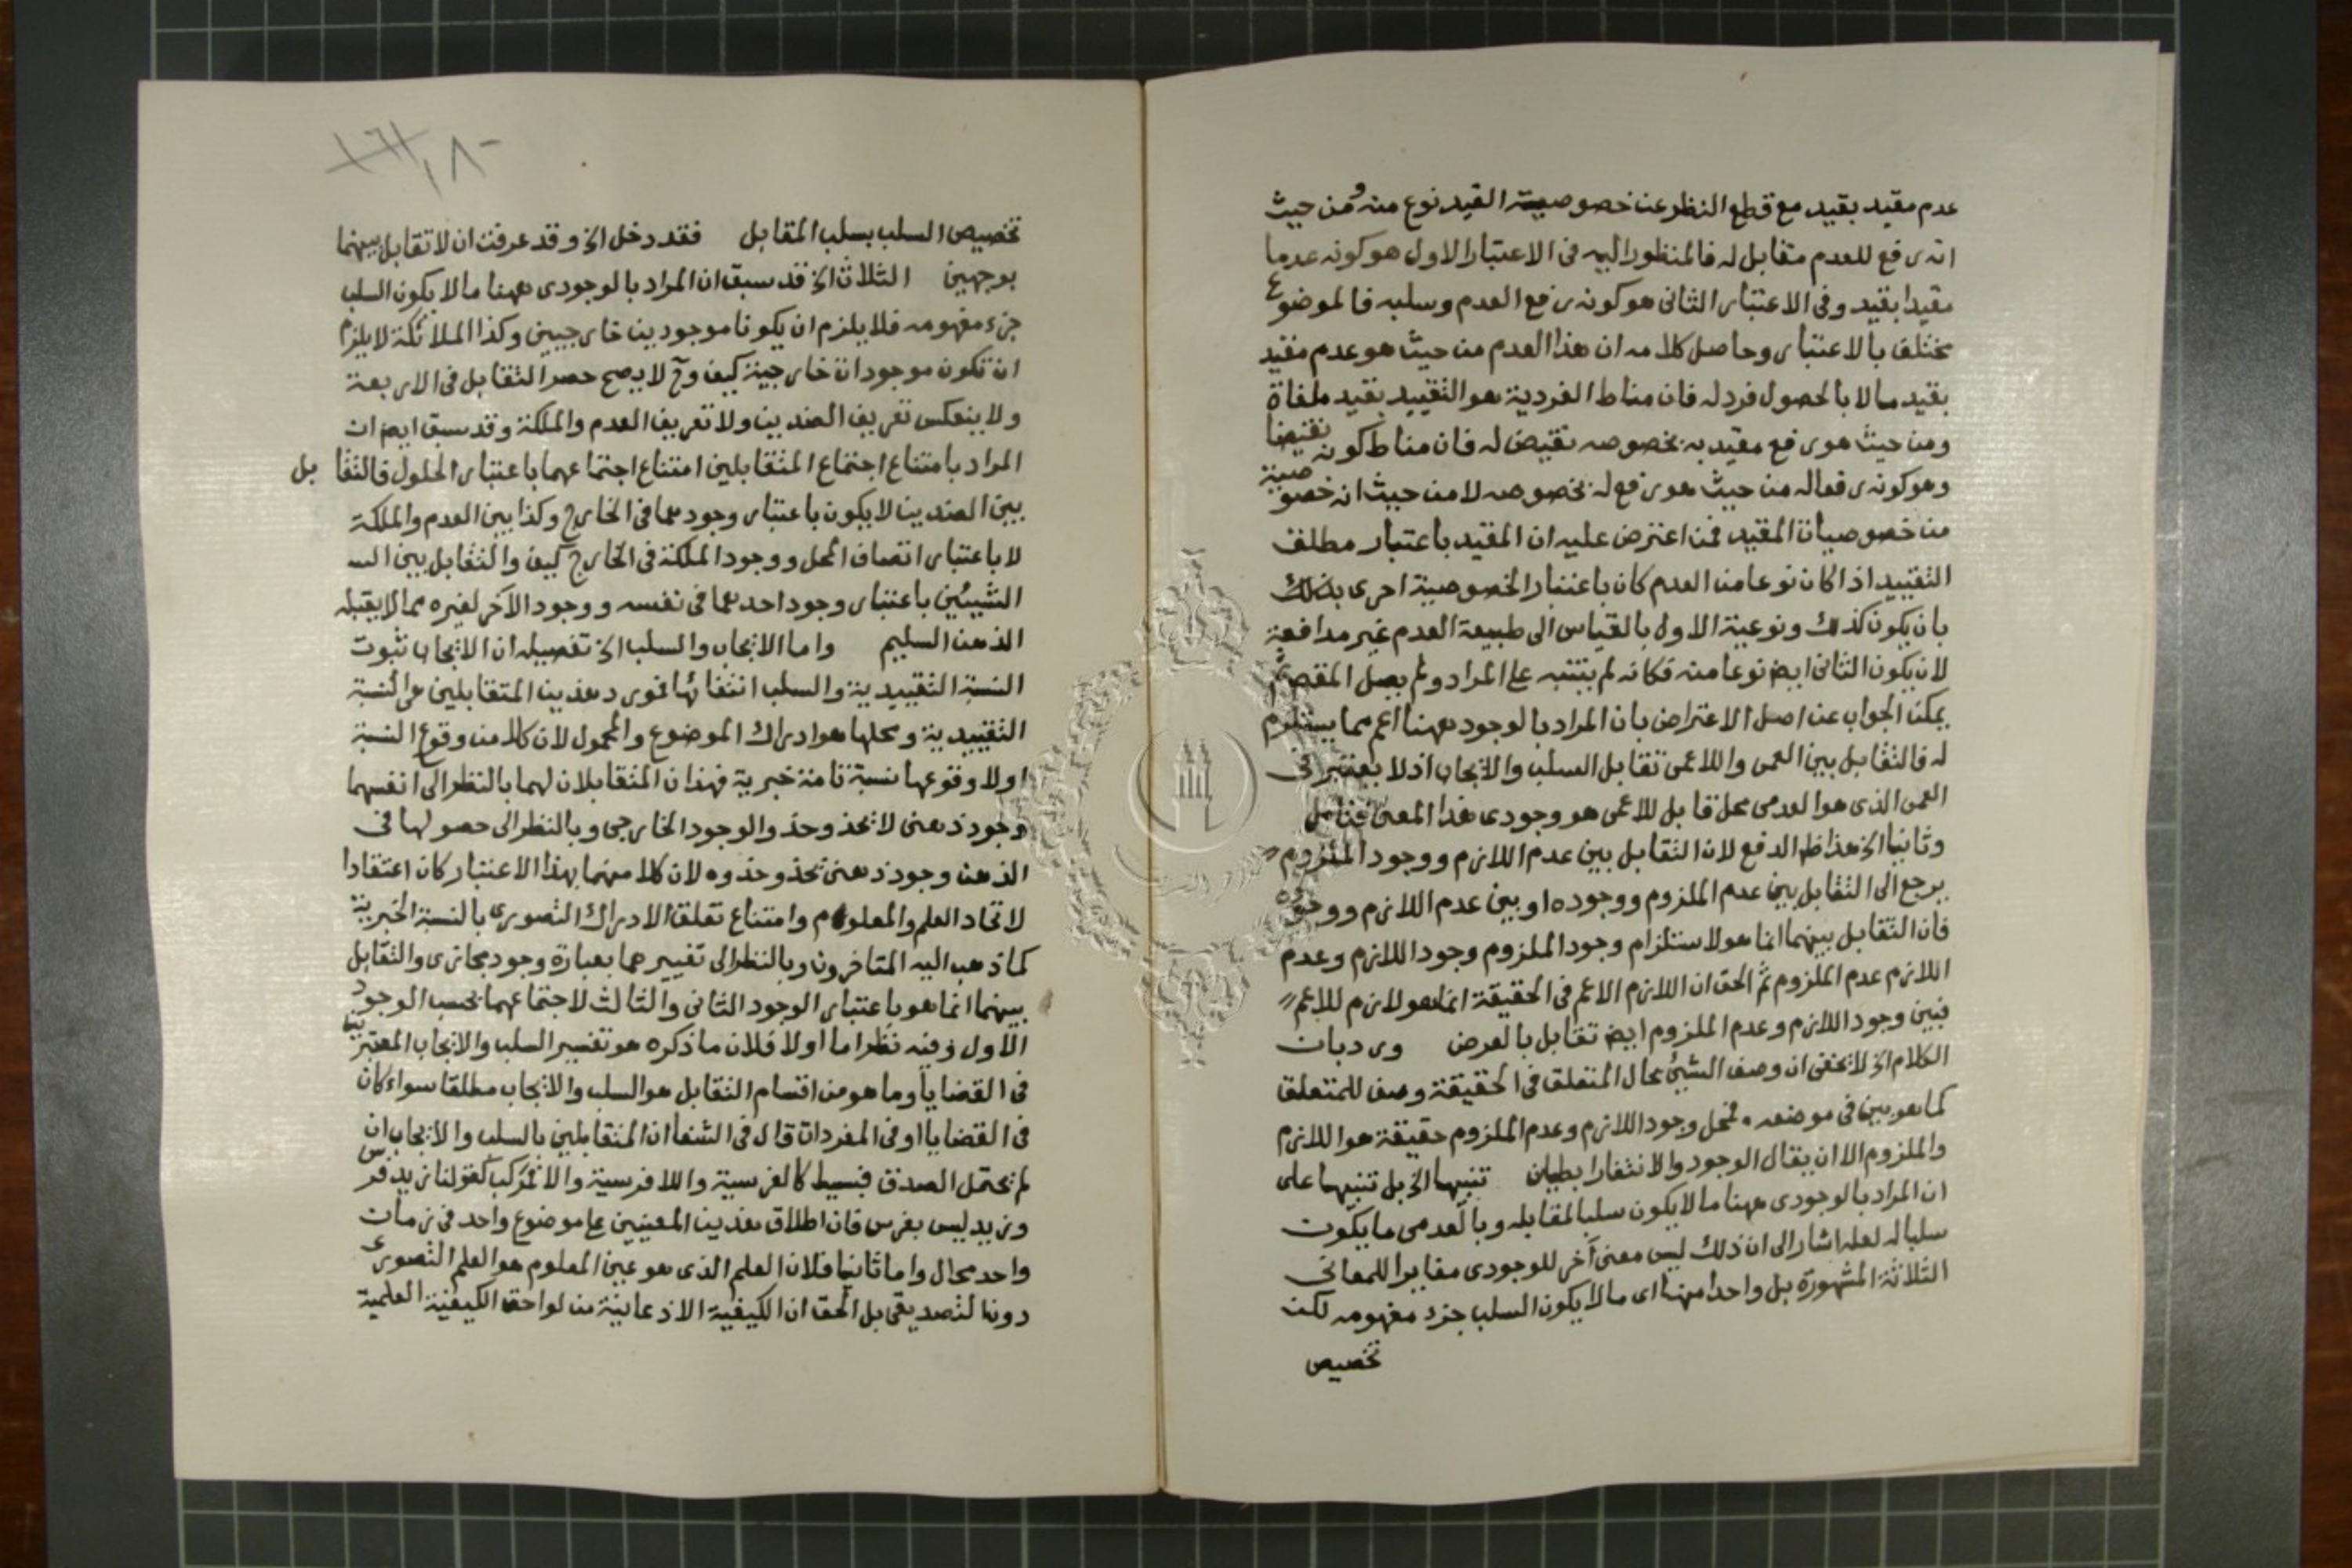 عدم مقيد بقيد مع قطع النظر عن خصوصية القيد نوع منه ومن حيث
انه رفع للعدم متقابل له فالمنظور اليه فى الاعتبار الاول هو كونه عدما
مقيدا بقيد وفى الاعتبار الثانى هو كونه رفع العدم وسلبه فالموضوع
مختلف بالاعتبار وحاصل كلامه ان هذا العدم من حيث هو عدم مقيد
بقيد مالا بالحصول فرد له فان مناط الفردية هو التقييد بقيد ملغاة
ومن حيث هو رفع مقيد به بخصوصه نقيض له فان مناط كونه نقيضا
وهو كونه رفعا له من حيث هو رفع له بخصوصه لا من حيث انه خصوصية
من خصوصيات المقيد فمن اعترض عليه ان المقيد باعتبار مطلق
التقييد اذا كان نوعا من العدم كان باعتبار الخصوصية احرى بذلك
بان يكون كذلك ونوعية الاول بالقياس الى طبيعة العدم غير مدافعة
لان يكون الثانى ايض نوعا منه فكانه لم يتنبه على المراد ولم يصل المقصد ثم
يمكن الجواب عن اصل الاعتراض بان المراد بالوجود ههنا اعم مما يستلزم
له فالتقابل بين العمى واللاعمى تقابل السلب والايجاب اذ لا يعتبر فى
العمى الذى هو العدمى محل قابل للاعمى هو وجودى هذا المعنى فتامل
وثانيا الخ هذا ظ الدفع لان التقابل بين عدم اللازم ووجود الملزوم
يرجع الى التقابل بين عدم الملزوم ووجوده او بين عدم اللازم ووجوده
فان التقابل بينهما انما هو لاستلزام وجود الملزوم وجود اللازم وعدم
اللازم عدم الملزوم ثم الحق ان اللازم الاعم فى الحقيقة انما هو لازم للاعم
فبين وجود اللازم وعدم الملزوم ايض تقابل بالعرض ورد بان
الكلام الخ لا يخفى ان وصف الشيئ بحال المتعلق فى الحقيقة وصف للمتعلق
كما هو بين فى موضعه فمحل وجود اللازم وعدم الملزوم حقيقة هو اللازم
والملزوم الا ان يقال الوجود والانتفا رابطيان تنبيها الخ بل تنبيها على
ان المراد بالوجودى ههنا ما لا يكون سلبا لمقابله وبالعدمى ما يكون
سلبا له لعله اشار الى ان ذلك ليس معنى آخر للوجودى مغايرا للمعانى
الثلاثة المشهورة بل واحدا منها اى ما لا يكون السلب جزء مفهومه لكن
تخصيص
١٨٠
تخصيص السلب بسلب المقابل فقد دخل الخ وقد عرفت ان لا تقابل بينهما
بوجهين الثلاث الخ قد سبق ان المراد بالوجودى ههنا ما لا يكون السلب
جزء مفهومه فلا يلزم ان يكونا موجودين خارجيين وكذا الملائكة لا يلزم
ان تكون موجودات خارجية كيف وح لا يصح حصر التقابل فى الاربعة
ولا ينعكس تعريف الضدين ولا تعريف العدم والملكة وقد سبق ايض ان
المراد بامتناع اجتماع المتقابلين امتناع اجتماعهما باعتبار الحلول فالتقابل
بين الضدين لا يكون باعتبار وجودهما فى الخارج وكذا بين العدم والملكة
لا باعتبار اتصاف المحل ووجود الملكة فى الخارج كيف والتقابل بين
الشيئين باعتبار وجود احدهما فى نفسه ووجود الآخر لغيره مما لا يقبله
الذهن السليم واما الايجاب والسلب الخ تفصيله ان الايجاب ثبوت
النسبة التقييدية والسلب انتفائها فورد هذين المتقابلين هى النسبة
التقييدية ومحلها هو ادراك الموضوع والمحمول لان كلا من وقوع النسبة
اولا وقوعها نسبة تامة خبرية فهذان المتقابلان لهما بالنظر الى انفسهما
وجود ذهنى لا يحذو حذو الوجود الخارجى وبالنظر الى حصولها فى
الذهن وجود ذهنى يحذو حذوه لان كلا منهما بهذا الاعتبار كان اعتقادا
لاتحاد العلم والمعلوم وامتناع تعلق الادراك التصورى بالنسبة الخبرية
كما ذهب اليه المتاخرون وبالنظر الى تفييرهما بعبارة وجود مجازى والتقابل
بينهما انما هو باعتبار الوجود الثانى والثالث لاجتماعهما بحسب الوجود
الاول وفيه نظر اما اولا فلان ما ذكره هو تفسير السلب والايجاب المعتبرين
فى القضايا وما هو من اقسام التقابل هو السلب والايجاب مطلقا سواء كان
فى القضايا او فى المفردات قال فى الشفا ان المتقابلين بالسلب والايجاب ان
لم يحتمل الصدق فبسيط كالفرسية واللافرسية والا فمركب كقولنا زيد فرس
وزيد ليس بفرس فان اطلاق هذين المعنيين على موضوع واحد فى زمان
واحد محال واما ثانيا فلان العلم الذى هو عين المعلوم هو العلم التصورى
دون التصديقى بل الحق ان الكيفية الاذعانية من لواحق الكيفية العلمية